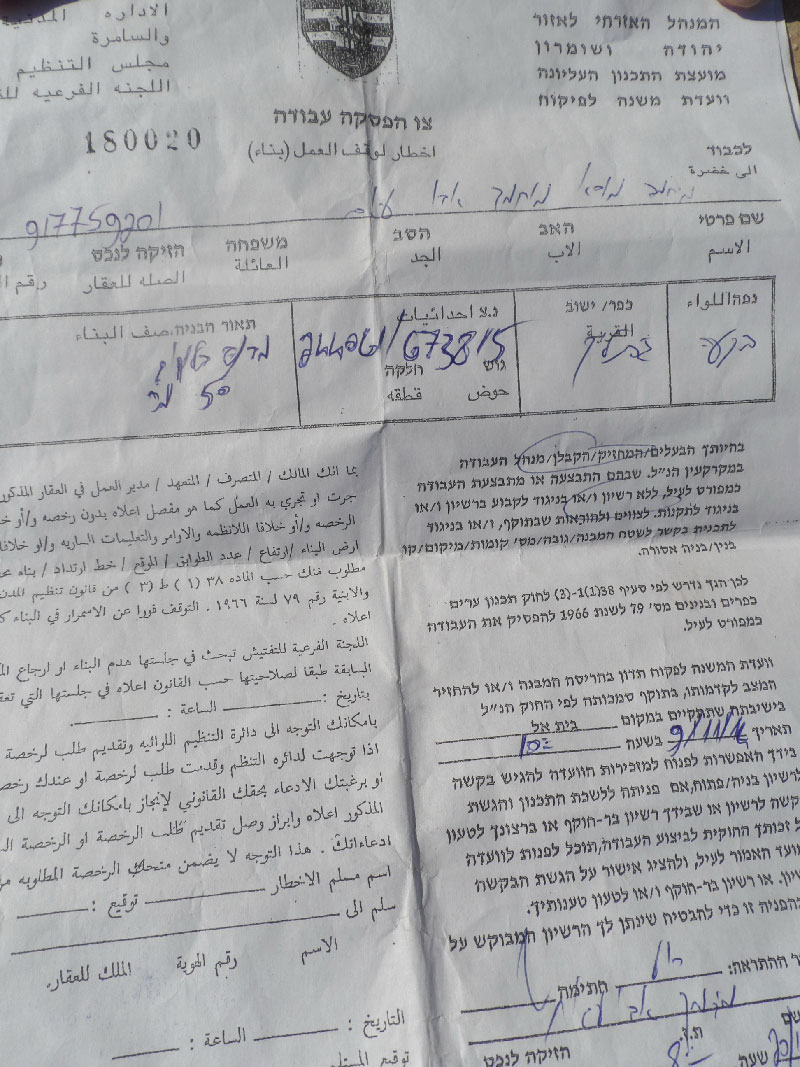 המנהל האזרחי לאזור
יהודה ושומרון
מועצת התכנון העליונה
וועדת משנה לפיקוח
الاداره
والسامرة
مجلس التنظيم
اللجنه الفرعيه
180020
צו הפסקה עבודה
اخطار لوقف العمل (بناء)
לכבוד
الى حضرة
שם פרטי האב הסב משפחה הזיקה לנכס
الاسم الاب الجد العائلة الصله للعقار رقم
נפה/اللواء
בקעה
כפר/ישוב
القرية
נ.צ احداثيات
673815
גוש חלקה
حوض قطقه
תאור הבניה.صف البناء
בהיותך הבעלים/המחזיק/הקבלן/מנהל העבודה
במקרקעין הנ"ל. שבהם התבצעה או מתבצעת העבודה
כמפורט לעיל, ללא רשיון ו/או בניגוד לקבוע ברשיון ו/או
בניגוד לתקנות. לצווים ולהוראות שבתוקף, ו/או בניגוד
לתכנית בקשר לשטח המבנה/גובה/מס' קומות/מיקום/קו
בנין/בניה אסורה.
לכן הנך נדרש לפי סעיף 38(1)-(3) לחוק תכנון ערים
כפרים ובנינים מס' 79 לשנת 1966 להפסיק את העבודה
כמפורט לעיל.
וועדת המשנה לפקוח תדון בהריסה המבנה ו/או להחזיר
המצב לקדמותו, בתוקף סמכותה לפי החוק הנ"ל
בישיבתה שתתקיים במקום בית אל
תאריך 9/11/ בשעה 10
בידך האפשרות לפנות למזכירות הוועדה להגיש בקשה
לרשיון בניה/פתוח,אם פניתה ללשכת התכנון והגשת
קשה לרשיון או שבידך רשיון בר-חוקף או ברצונך לטעון
ל זכותך החוקית לביצוע העבודה,תוכל לפנות לוועדה
ועד האמור לעיל, ולהציג אישור על הגשת הבקשה
שיון. או רשיון בר-חוקף ו/או לטעון טענותיך.
הפניה זו כדי להבטיח שינתן לך הרשיון המבוקש על
ר ההתראה: חתימה
שם ת.ז. הזיקה לנכס
שעה
بما انك المالك / المتصرف / المتعهد / مدير العمل في العقار المذكور
جرت او تجري به العمل كما هو مفصل اعلاه بدون رخصه و/أو
الرخصه و/أو خلافا للانظمه والاوامر والتعليمات الساريه و/او خلافا
ارض البناء /ارتفاع / عدد الطوابق / الموقع / خط ارتداد / بناء
مطلوب منك حسب الماده ٣٨ (١) ط (٣) من قانون تنظيم المدن
والابنية رقم ٧٩ لسنة ١٩٦٦ . التوقف فورا عن الاستمرار في البناء
اعلاه .
اللجنة الفرعية للتفتيش تبحث في جلستها هدم البناء او ارجاع
السابقة طبقا لصلاحيتها حسب القانون اعلاه في جلستها التي
بتاريخ : الساعة :
بامكانك التوجه الى دائرة التنظيم اللوائيه وتقديم طلب لرخصة
اذا توجهت لدائره التنظم وقدمت طلب لرخصة او عندك
أو برغبتك الادعاء بحقك القانوني لإنجاز بامكانك التوجه الى
المذكور اعلاه وابراز وصل تقديم طلب الرخصة او الرخصة
ادعاءاتك . هذا التوجه لا يضمن منحك الرخصة المطلوبه
اسم مسلم الاخطار توقيع :
سلم الى
الاسم رقم الهوية الملك للعقار.
التاريخ : الساعة :
توقيع